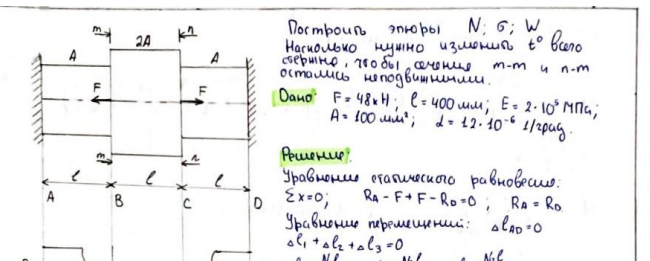 Построить эпюры N; σ; W
Насколько нужно изменить t° всего
стержня, чтобы сечения m-m и n-m
остались неподвижными.
Дано: F = 48кН; ℓ = 400 мм; E = 2·10⁵ МПа;
A = 100 мм²; α = 12·10⁻⁶ 1/град.
Решение:
Уравнение статического равновесия:
Σx=0; R_A - F + F - R_D = 0; R_A = R_D
Уравнение перемещений: Δℓ_AD = 0
Δℓ₁ + Δℓ₂ + Δℓ₃ = 0
m 2A n
A A
F F
m n
ℓ ℓ ℓ
A B C D